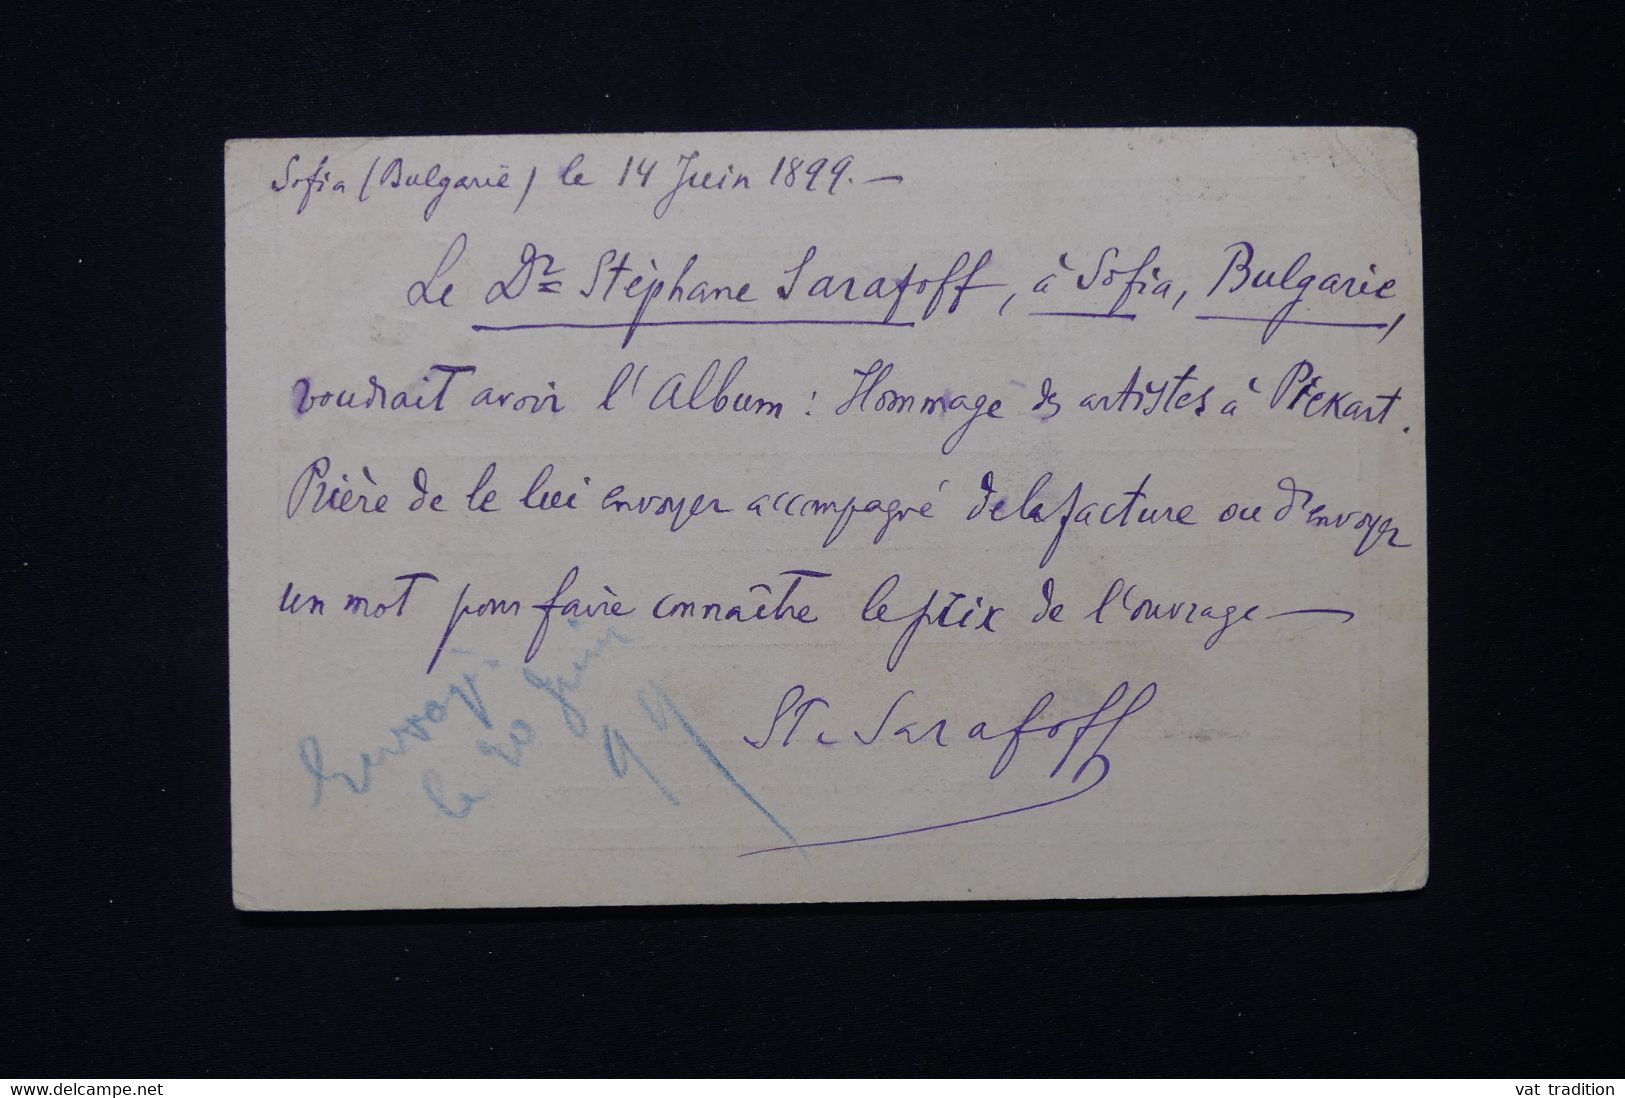 Sofia (Bulgarie) le 14 Juin 1899. —
Le Dr Stéphane Sarafoff, à Sofia, Bulgarie,
voudrait avoir l'Album : Hommage des artistes à Pickart.
Prière de le lui envoyer accompagné de la facture ou d'envoyer
un mot pour faire connaître le prix de l'ouvrage —
St. Sarafoff
Envoyé
le 20 Juin
99
www.delcampe.net
vat tradition